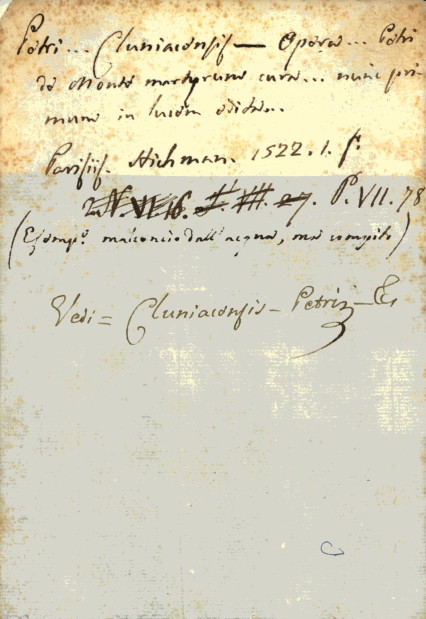 Petri... Cluniacensis — Opera... Petri
de Monte martyrum cura... nunc pri-
mum in lucem edita...
Parisiis. Hichman. 1522. 1. f.
P. VII. 78
(Esemp.° malconcio dall'acqua, ma compito)
Vedi = Cluniacensis - Petri